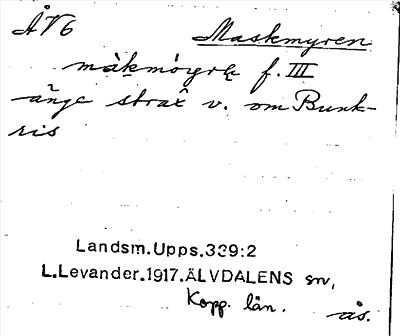 ÅV6 Maskmyren
f. III
änge strax v. om Bunk-
ris
Landsm.Upps.339:2
L.Levander.1917.ÄLVDALENS sn,
Kopp. län.
ås.